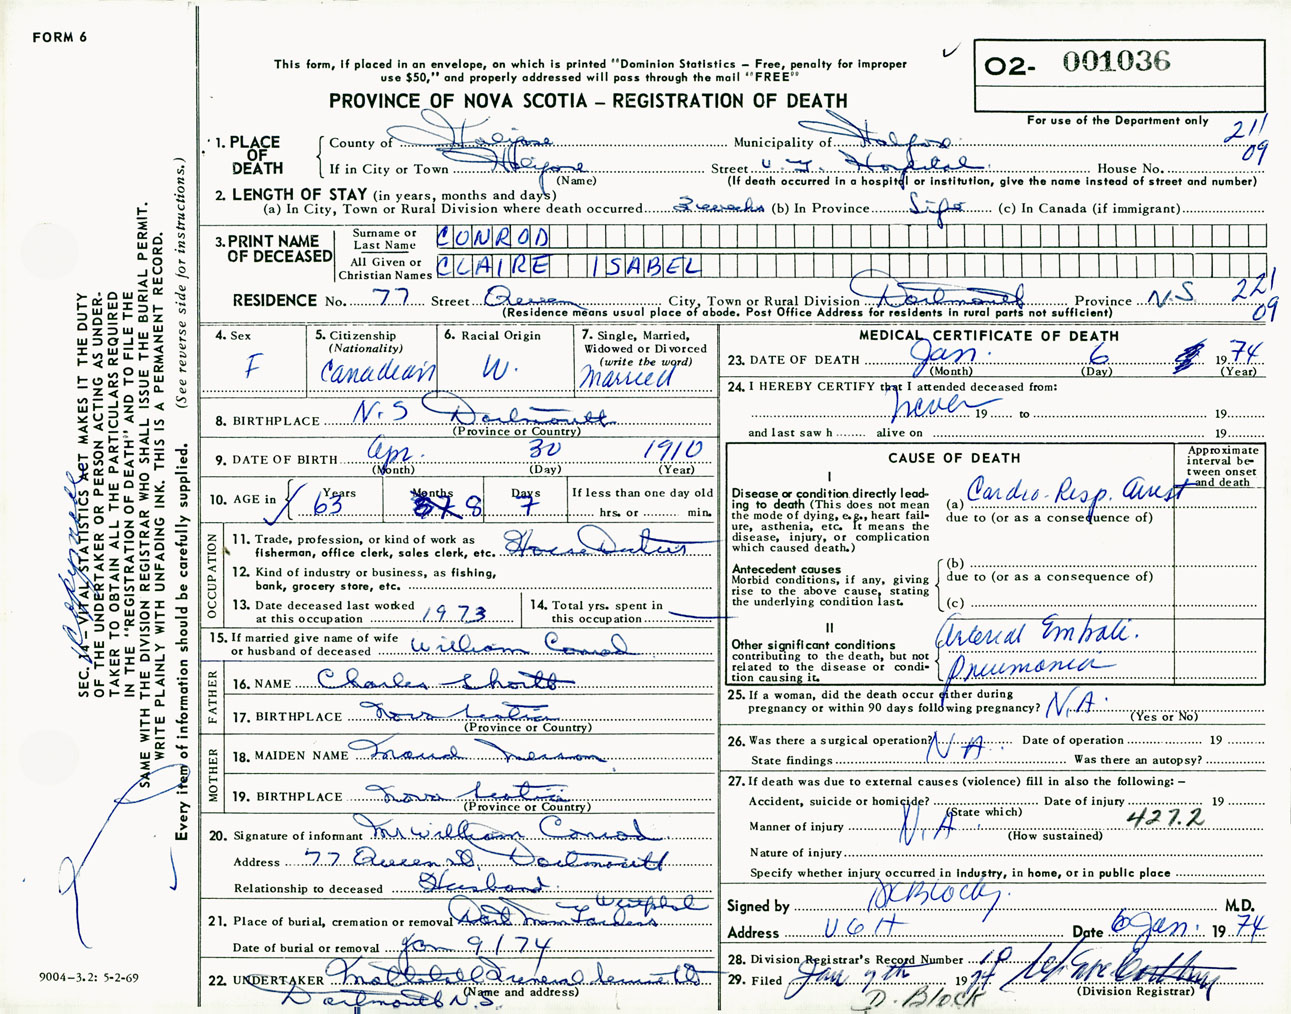 FORM 6
This form, if placed in an envelope, on which is printed "Dominion Statistics – Free, penalty for improper
use $50," and properly addressed will pass through the mail "FREE"
PROVINCE OF NOVA SCOTIA – REGISTRATION OF DEATH
O2- 001036
For use of the Department only
211
09
1. PLACE OF DEATH
County of Halifax Municipality of Halifax
If in City or Town Halifax Street V.G. Hospital House No.
(Name) (If death occurred in a hospital or institution, give the name instead of street and number)
2. LENGTH OF STAY (in years, months and days)
(a) In City, Town or Rural Division where death occurred 3 weeks (b) In Province Life (c) In Canada (if immigrant)
3. PRINT NAME OF DECEASED
Surname or Last Name CONROD
All Given or Christian Names CLAIRE ISABEL
RESIDENCE No. 77 Street Queen City, Town or Rural Division Dartmouth Province N.S
(Residence means usual place of abode. Post Office Address for residents in rural parts not sufficient)
221
09
4. Sex
F
5. Citizenship
(Nationality)
Canadian
6. Racial Origin
W.
7. Single, Married,
Widowed or Divorced
(write the word)
Married
8. BIRTHPLACE N.S Dartmouth
(Province or Country)
9. DATE OF BIRTH Apr. 30 1910
(Month) (Day) (Year)
10. AGE in Years Months Days If less than one day old
63 8 7 hrs. or min.
OCCUPATION
11. Trade, profession, or kind of work as
fisherman, office clerk, sales clerk, etc. House Duties
12. Kind of industry or business, as fishing,
bank, grocery store, etc.
13. Date deceased last worked
at this occupation 1973
14. Total yrs. spent in
this occupation
15. If married give name of wife
or husband of deceased William Conrod
FATHER
16. NAME Charles Shortt
17. BIRTHPLACE Nova Scotia
(Province or Country)
MOTHER
18. MAIDEN NAME Maud
19. BIRTHPLACE Nova Scotia
(Province or Country)
20. Signature of informant Mr William Conrod
Address 77 Queen St. Dartmouth
Relationship to deceased Husband
21. Place of burial, cremation or removal Dart Mem Gardens Westphal
Date of burial or removal Jan 9/74
22. UNDERTAKER Funeral Service Ltd
(Name and address)
Dartmouth N.S.
MEDICAL CERTIFICATE OF DEATH
23. DATE OF DEATH Jan. 6 1974
(Month) (Day) (Year)
24. I HEREBY CERTIFY that I attended deceased from:
never 19 to 19
and last saw h alive on 19
CAUSE OF DEATH
Approximate
interval be-
tween onset
and death
I
Disease or condition directly lead-
ing to death (This does not mean
the mode of dying, e.g., heart fail-
ure, asthenia, etc. It means the
disease, injury, or complication
which caused death.)
(a) Cardio-Resp. Arrest
due to (or as a consequence of)
Antecedent causes
Morbid conditions, if any, giving
rise to the above cause, stating
the underlying condition last.
(b)
due to (or as a consequence of)
(c)
II
Other significant conditions
contributing to the death, but not
related to the disease or condi-
tion causing it.
Arterial Emboli.
Pneumonia
25. If a woman, did the death occur either during
pregnancy or within 90 days following pregnancy? N.A.
(Yes or No)
26. Was there a surgical operation? N A Date of operation 19
State findings Was there an autopsy?
27. If death was due to external causes (violence) fill in also the following: –
Accident, suicide or homicide? Date of injury 19
(State which)
Manner of injury N.A 427.2
(How sustained)
Nature of injury
Specify whether injury occurred in industry, in home, or in public place
Signed by M.D.
Address VGH Date 6 Jan. 1974
28. Division Registrar's Record Number 10
29. Filed Jan 7th 1974
(Division Registrar)
D. BLOCK
SEC. 14 – VITAL STATISTICS ACT MAKES IT THE DUTY
OF THE UNDERTAKER OR PERSON ACTING AS UNDER-
TAKER TO OBTAIN ALL THE PARTICULARS REQUIRED
IN THE "REGISTRATION OF DEATH" AND TO FILE THE
SAME WITH THE DIVISION REGISTRAR WHO SHALL ISSUE THE BURIAL PERMIT.
WRITE PLAINLY WITH UNFADING INK. THIS IS A PERMANENT RECORD.
Every item of information should be carefully supplied. (See reverse side for instructions.)
9004–3.2: 5-2-69